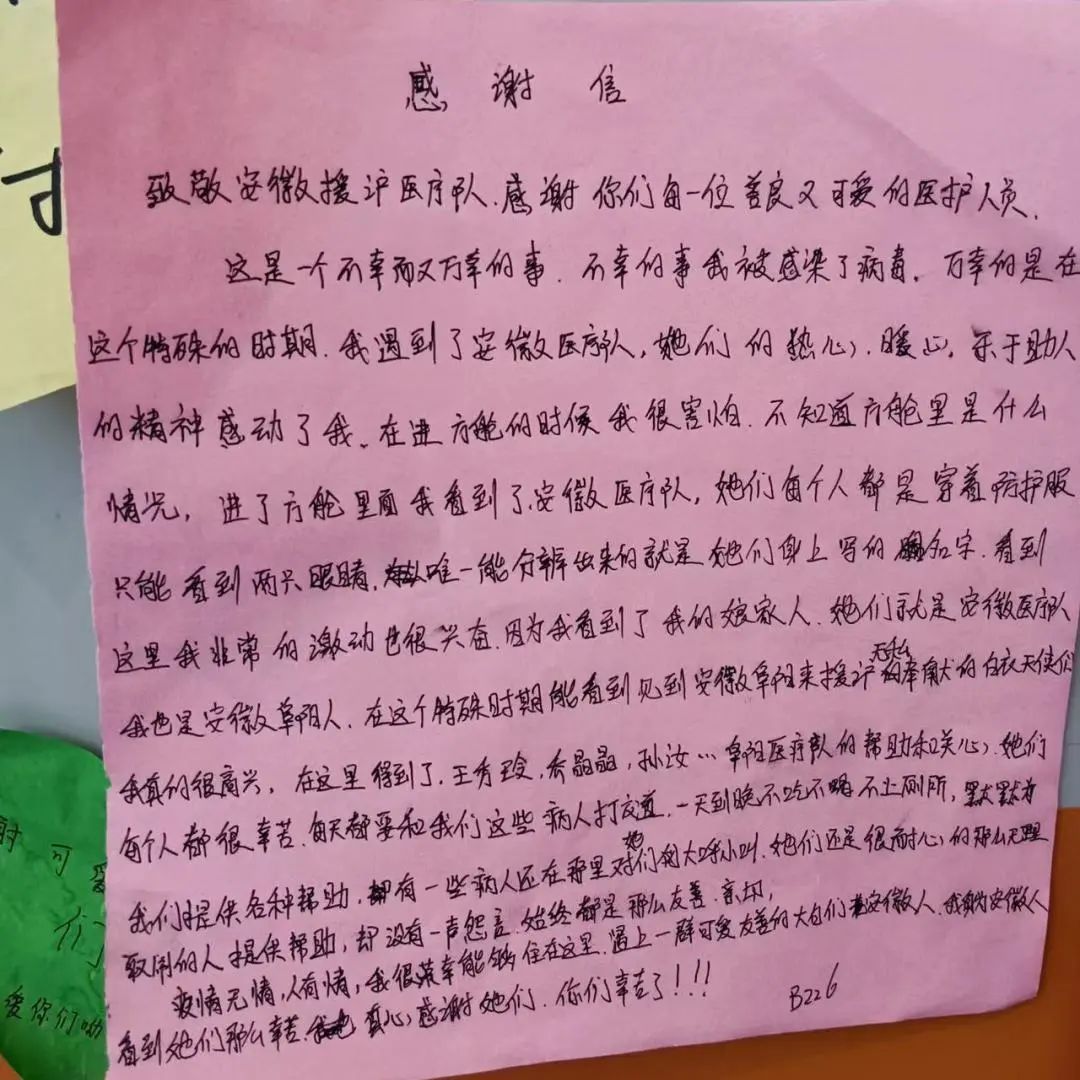 感谢信
致敬安徽援沪医疗队.感谢你们每一位善良又可爱的医护人员.
这是一个不幸而又万幸的事.不幸的事我被感染了病毒,万幸的是在
这个特殊的时期.我遇到了安徽医疗队,她们的热心.暖心,乐于助人
的精神感动了我.在进方舱的时候我很害怕.不知道方舱里是什么
情况,进了方舱里面我看到了安徽医疗队,她们每个人都是穿着防护服
只能看到两只眼睛,唯一能分辨出来的就是她们身上写的名字.看到
这里我非常的激动也很兴奋.因为我看到了我的娘家人.她们就是安徽医疗队
我也是安徽阜阳人.在这个特殊时期能看到见到安徽阜阳来援沪无私奉献的白衣天使们
我真的很高兴,在这里得到了.王秀,晶晶,孙汝…阜阳医疗队的帮助和关心.她们
每个人都很辛苦.每天都要和我们这些病人打交道.一天到晚不吃不喝不上厕所,默默为
我们提供各种帮助.却有一些病人还在那里对她们大呼小叫.她们还是很耐心的那么无理
取闹的人提供帮助,却没有一声怨言.始终都是那么友善.亲切,
疫情无情,人有情,我很荣幸能够住在这里.遇上一群可爱友善的大白们安徽人.我为安徽人
看到她们那么辛苦.真心感谢她们.你们辛苦了!!!
B226
时可爱
们
爱你们呦